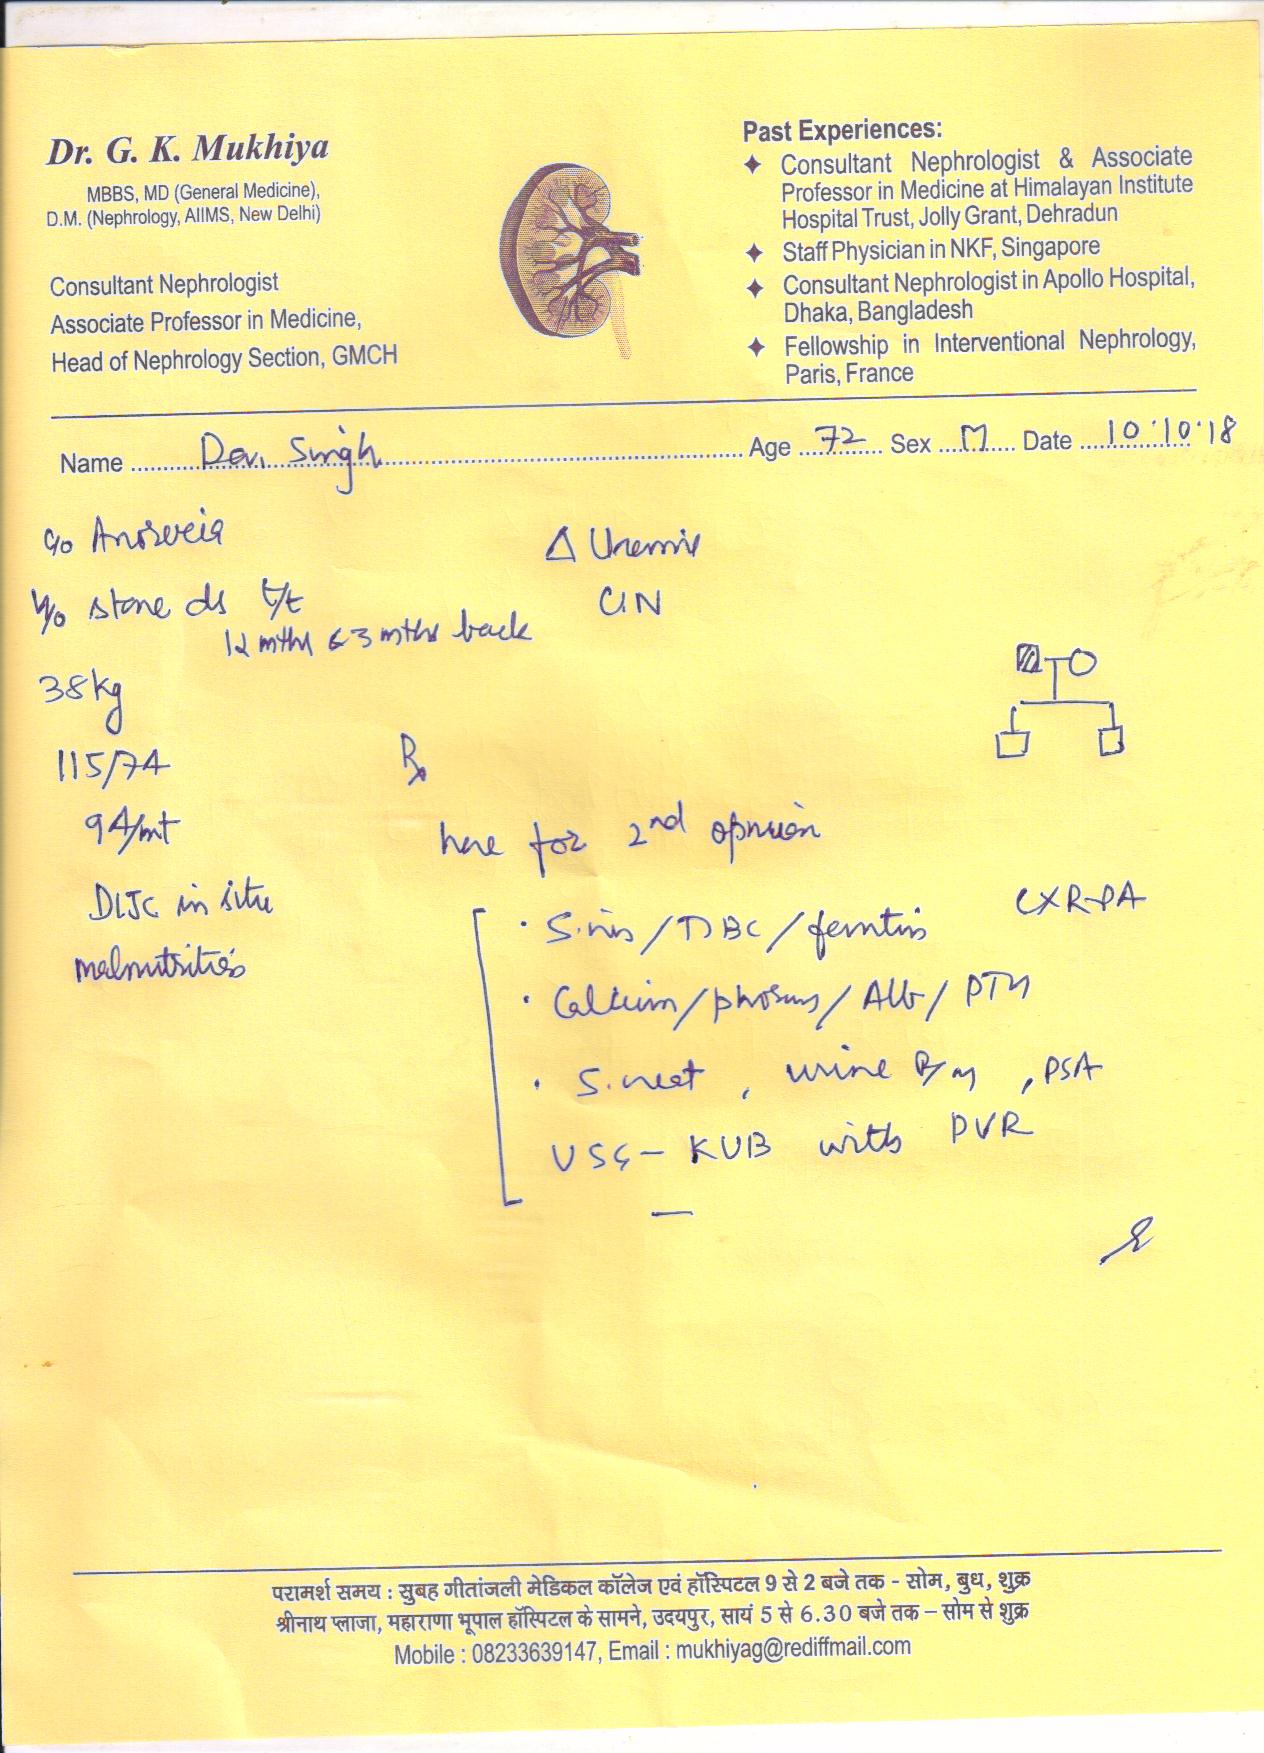 Dr. G. K. Mukhiya
MBBS, MD (General Medicine),
D.M. (Nephrology, AIIMS, New Delhi)
Consultant Nephrologist
Associate Professor in Medicine,
Head of Nephrology Section, GMCH
Past Experiences:
✦ Consultant Nephrologist & Associate
Professor in Medicine at Himalayan Institute
Hospital Trust, Jolly Grant, Dehradun
✦ Staff Physician in NKF, Singapore
✦ Consultant Nephrologist in Apollo Hospital,
Dhaka, Bangladesh
✦ Fellowship in Interventional Nephrology,
Paris, France
Name Devi Singh Age 72 Sex M Date 10.10.18
c/o Anorexia
Δ Uremia
h/o stone ds t/t
CIN
12 mths & 3 mths back
38kg
115/74
Rx
94/mt
here for 2nd opinion
DLJC in situ
CXR-PA
malnutrition
· S. iron / TIBC / ferritin
· Calcium / phosus / Alb / PTH
· S. creat, urine R/m, PSA
USG - KUB with PVR
परामर्श समय : सुबह गीतांजली मेडिकल कॉलेज एवं हॉस्पिटल 9 से 2 बजे तक - सोम, बुध, शुक्र
श्रीनाथ प्लाजा, महाराणा भूपाल हॉस्पिटल के सामने, उदयपुर, सायं 5 से 6.30 बजे तक – सोम से शुक्र
Mobile : 08233639147, Email : mukhiyag@rediffmail.com